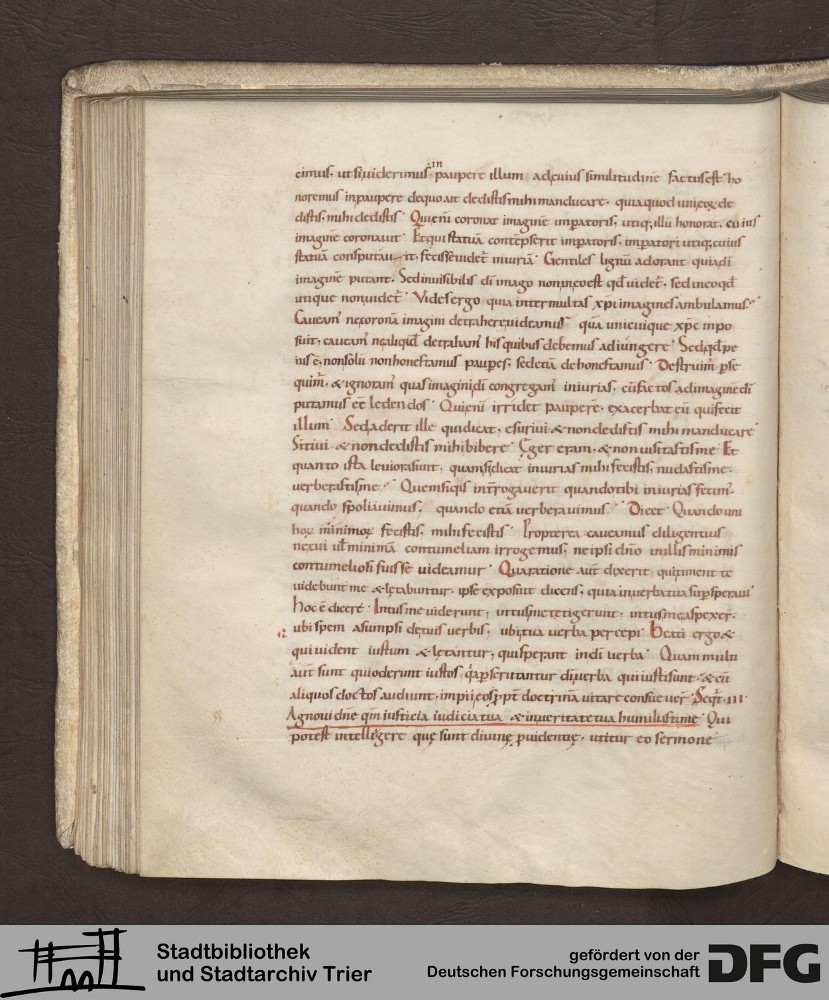 cimus, ut si viderimus in paupere illum ad cuius similitudinē factus est ho
noremus in paupere de quo ait dedistis mihi manducare, quia quod uni eoꝝ de
distis, mihi dedistis. Qui enī coronat imaginē imperatoris, utiq; illū honorat, cuius
imaginē coronavit. Et qui statuā contēpserit imperatoris, imperatori utiq; cuius
statuā consputav it, fecisse videt iniuriā. Gentiles lignū adorant quia dī
imaginē putant. Sed invisibilis dī imago non in eo est qd videt, sed in eo qd
utique non videt. Vides ergo quia inter multas xp̄i imagines ambulamus.
Caveam ne coronā imagini detrahere videamus, quā unicuique xp̄c impo
suit, caveam ne aliquid detraham his quibus debemus adiungere. Sed qd pe
ius ē, non solū non honestamus paupes, sed etiā dehonestamus. Destruim pse
quim, & ignoram quas imagini dī congregam iniurias, cū factos ad imaginē dī
putamus eē ledendos. Qui enī irridet pauperē, exacerbat eū qui fecit
illum. Sed aderit ille qui dicat, esurivi & non dedistis mihi manducare
Sitivi & non dedistis mihi bibere. Ęger eram, & non visitastis me. Et
quanto ista leviora sunt, quam si dicat iniurias mihi fecistis, nudastis me,
verberastis me. Quem si qis introgaverit quando tibi iniurias fecim,
quando spoliavimus, quando etiā verberavimus. Dicet. Quando uni
hoꝝ minimoꝝ fecistis, mihi fecistis. Propterea caveamus diligentius
ne cui ul minimā contumeliam irrogemus, ne ipsi dn̄o in illis minimis
contumeliosi fuisse videamur. Qua ratione aut dixerit, qui timent te
videbunt me & lętabuntur, ipse exposuit dicens, quia in verba tua supsperavi
hoc ē dicere. Intus me viderunt, intus me tetigerunt, intus me aspexer,
ubi spem asumpsi de tuis verbis, ubi tua verba percepi. Beati ergo &
qui vident iustum & lętantur, qui sperant in dī verba. Quam multi
aut sunt qui oderunt iustos qa pscrutantur dī verba qui iusti sunt, & cū
aliquos doctos audiunt, impii eos ppt doctrinā vitare consuever. Seqt. III.
Agnovi dn̄e qm iusticia iudicia tua & in veritate tua humiliasti me. Qui
potest intellegere quę sunt divinę pvidentię, utitur eo sermone
Stadtbibliothek
und Stadtarchiv Trier
gefördert von der
Deutschen Forschungsgemeinschaft
DFG